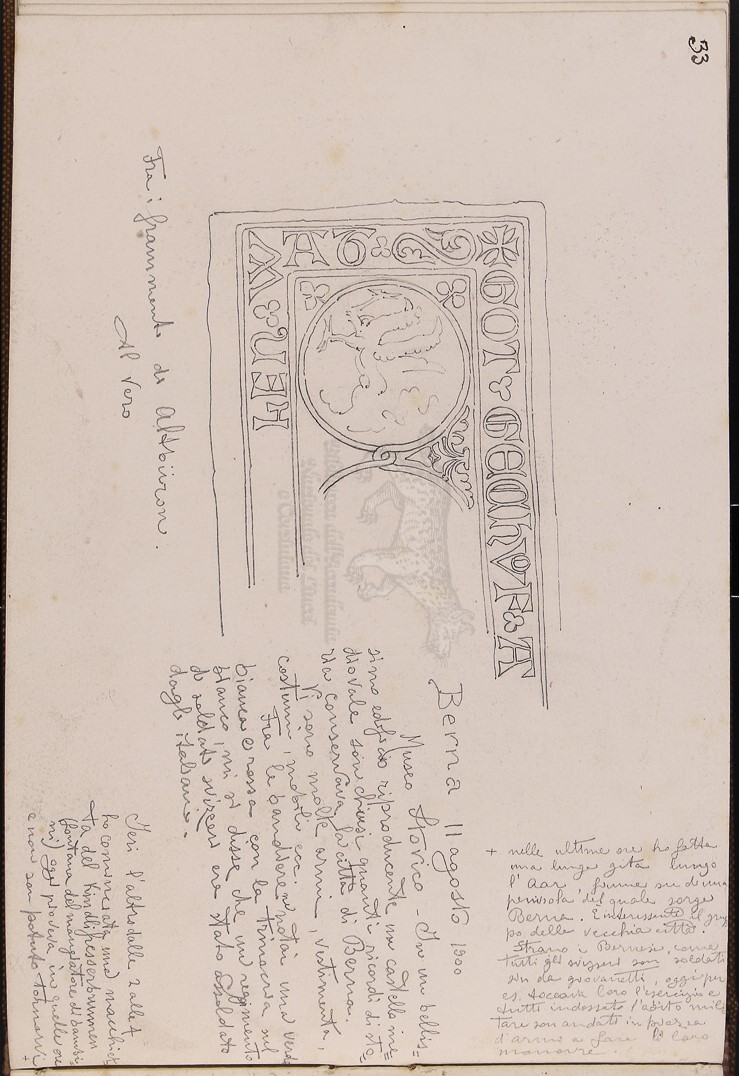 33
✠ GOT · GESCHUF · A
MEN
Fra i frammenti di Altbüron.
Al vero
Berna 11 agosto 1900
Museo Storico - In un bellis=
simo edificio riproducente un castello me=
dioevale son chiusi quanti ricordi di sto=
ria conservava la città di Berna.
Vi sono molte armi, vestimenta,
costumi, mobili ecc.
Fra le bandiere notai una verde
bianca e rossa con la trinacria sul
bianco, mi si disse che un reggimento
di soldati svizzeri era stato assoldato
dagli italiani.
Ieri l'altro dalle 2 alle 4
ho cominciata una macchiet
ta del Kindlifresserbrunnen
(fontana del mangiatore di bambi
ni) oggi pioveva in quelle ore
e non son potuto tornarvi +
+ nelle ultime ore ho fatta
una lunga gita lungo
l'Aar, fiume su di una
penisola del quale sorge
Berna. È interessante il grup
po della vecchia città.
Strano i Bernesi, come
tutti gli svizzeri son soldati
sin da giovanetti, oggi per
es. toccava loro l'esercizio e
tutti indossato l'abito mili
tare son andati in piazza
d'armi a fare le loro
manovre.